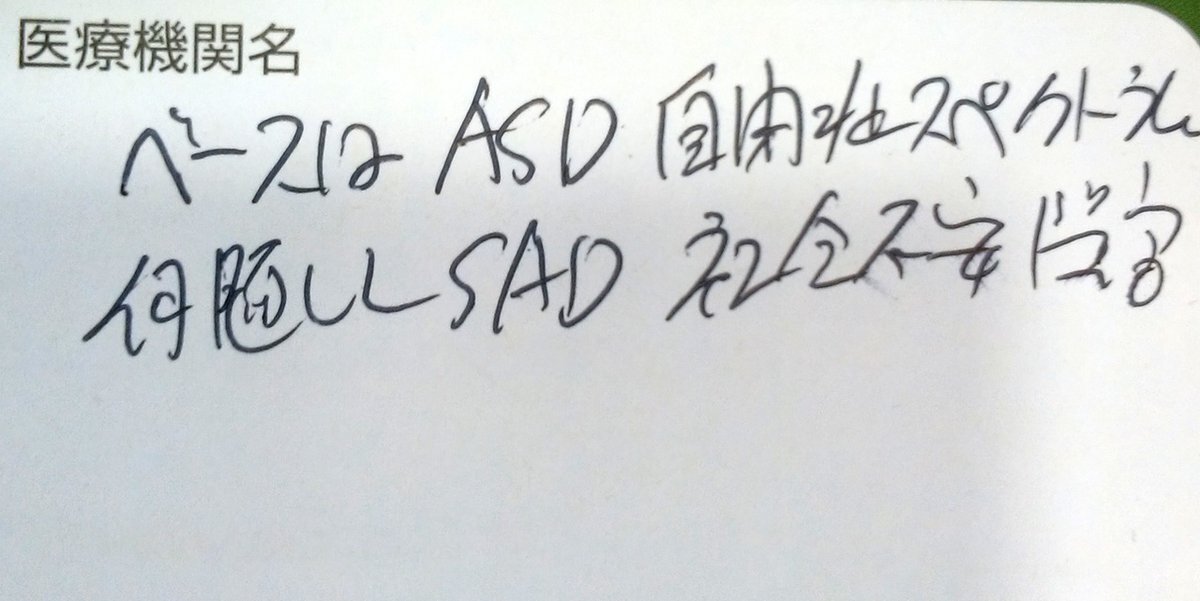 医療機関名
ベースは ASD 自閉症スペクトラム
付随して SAD 社会不安障害